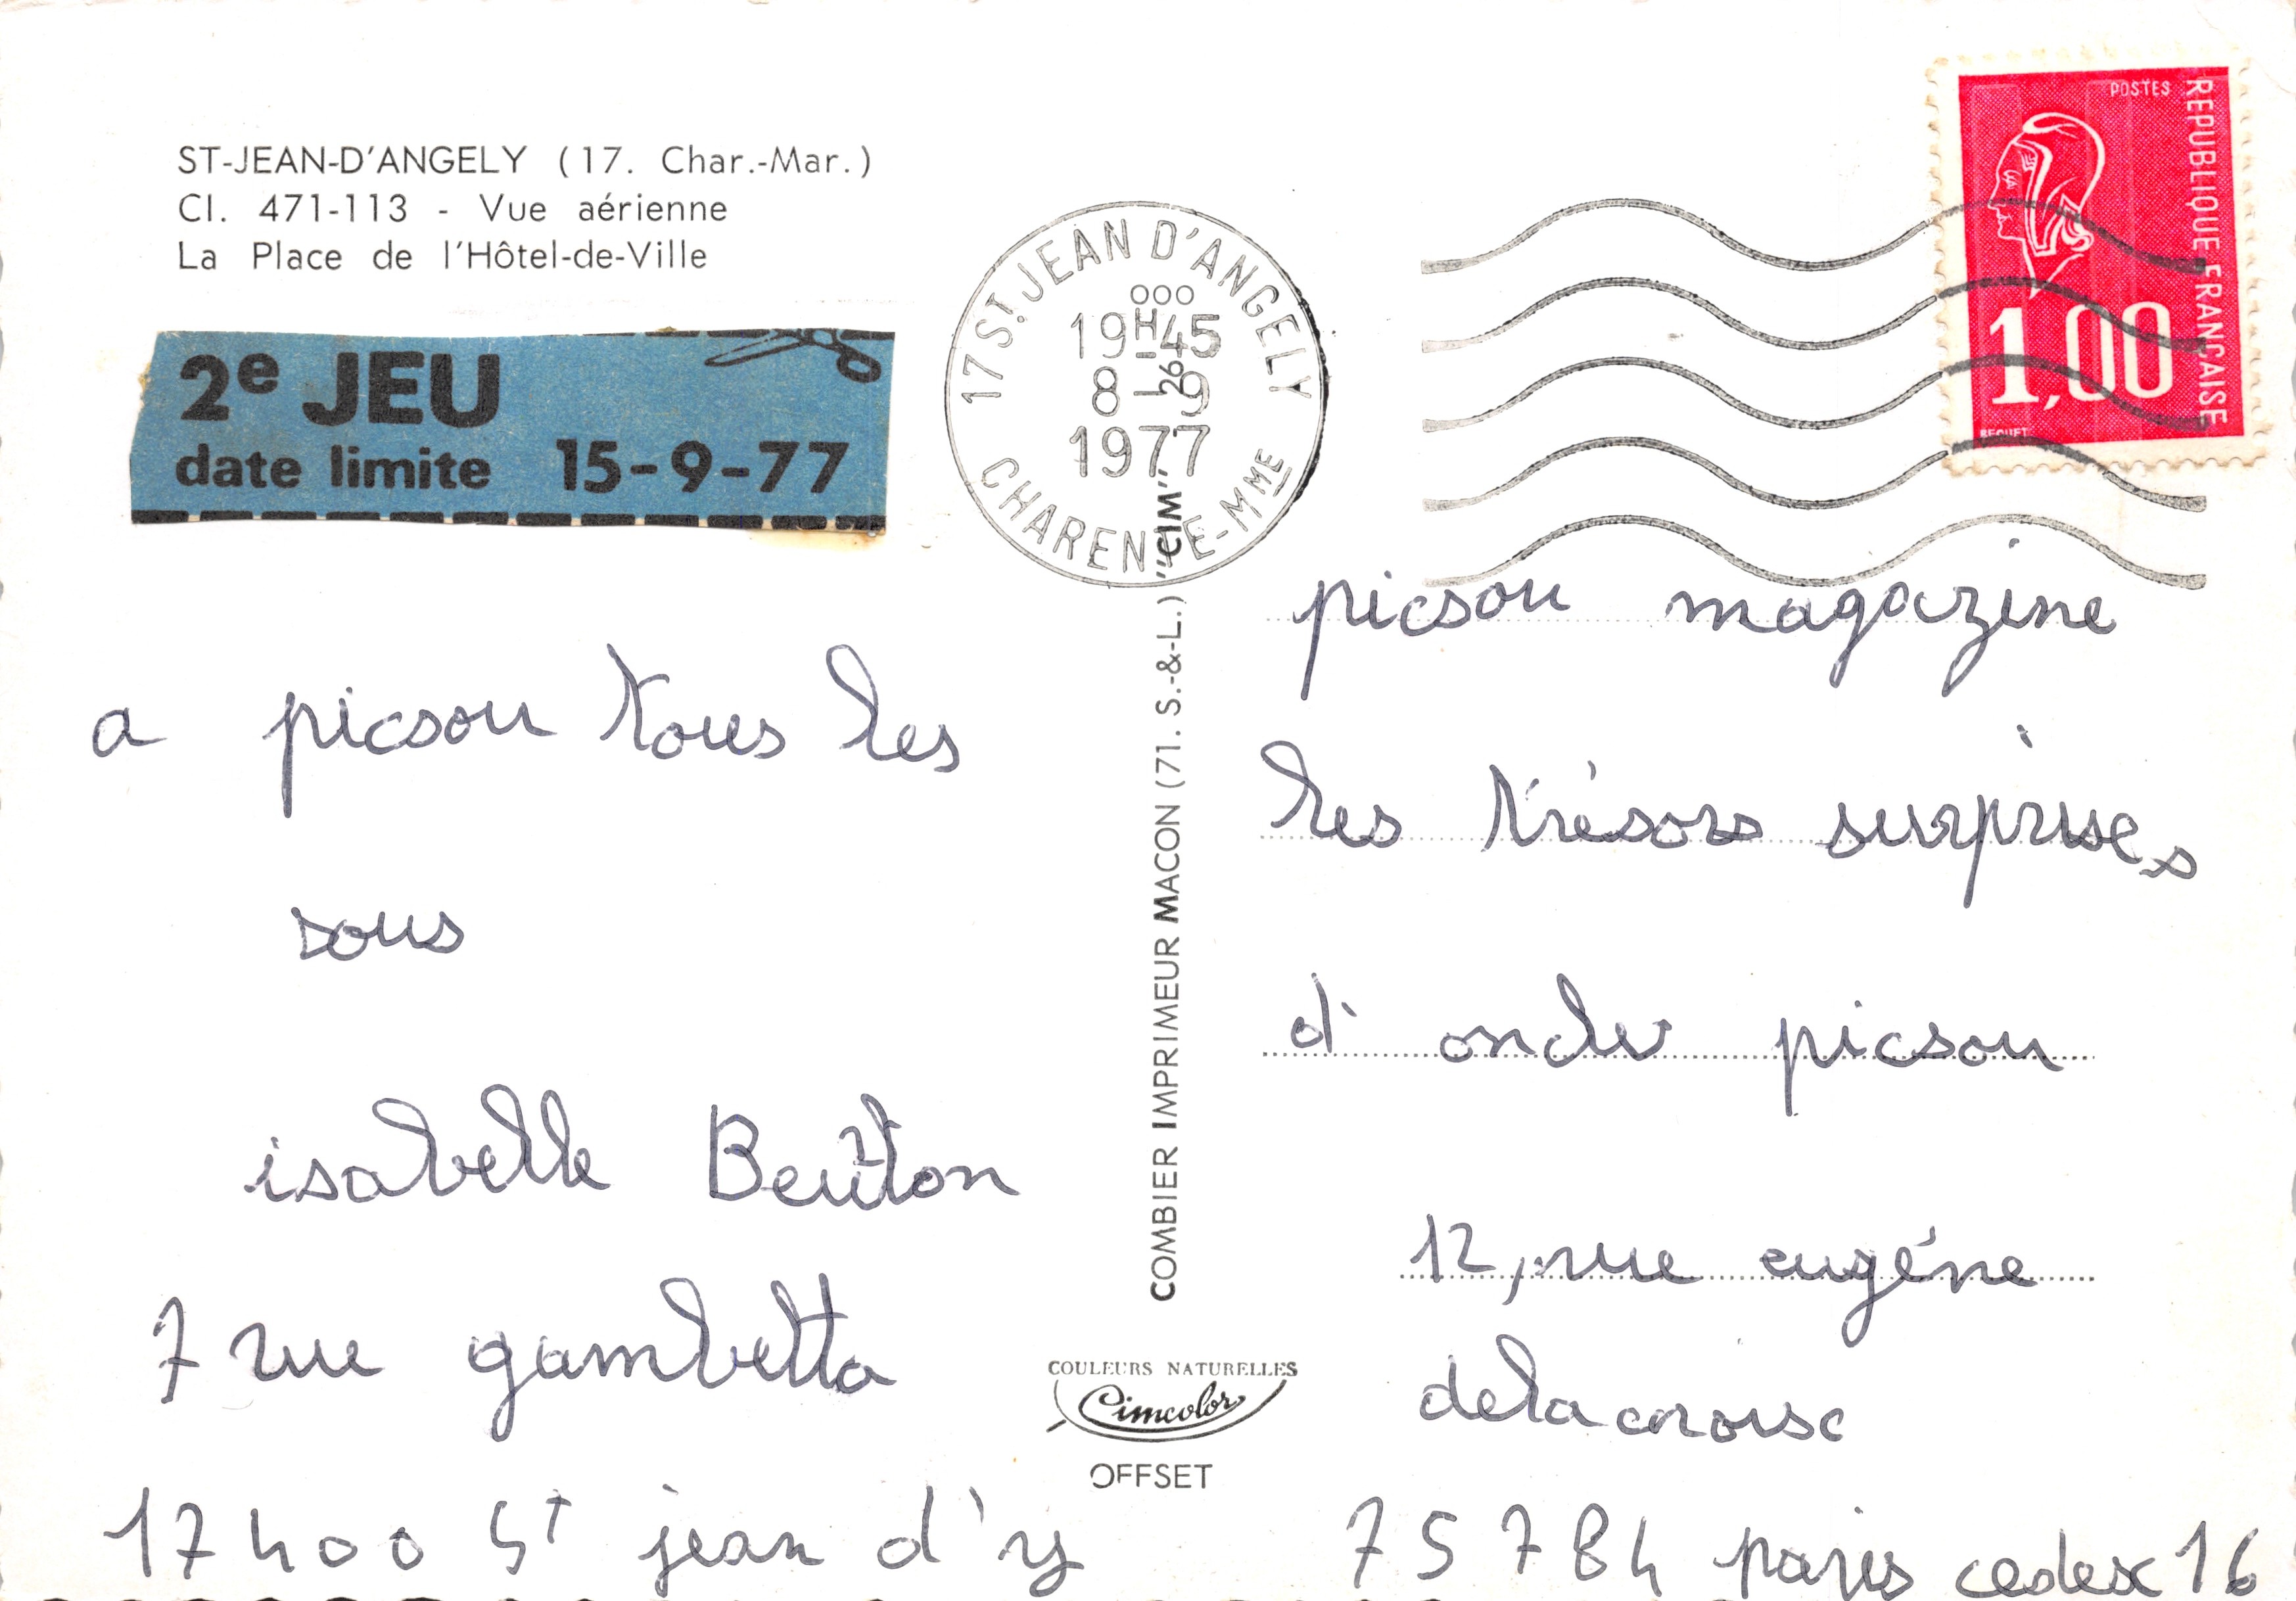 ST-JEAN-D'ANGELY (17. Char.-Mar.)
Cl. 471-113 - Vue aérienne
La Place de l'Hôtel-de-Ville
2e JEU
date limite 15-9-77
17 ST JEAN D'ANGELY
000
19H45
8-9
1977
CHARENTE-MME
POSTES
REPUBLIQUE FRANCAISE
1,00
BEQUET
a picsou tous les
sous
isabelle
7 rue gambetta
17400 St jean d'y
COMBIER IMPRIMEUR MACON (71. S.-&-L.) "CIM"
COULEURS NATURELLES
Cimcolor
OFFSET
picsou magazine
les trésors surprises
d' oncle picsou
12, rue eugéne
delacroisc
75784 paris cedex 16